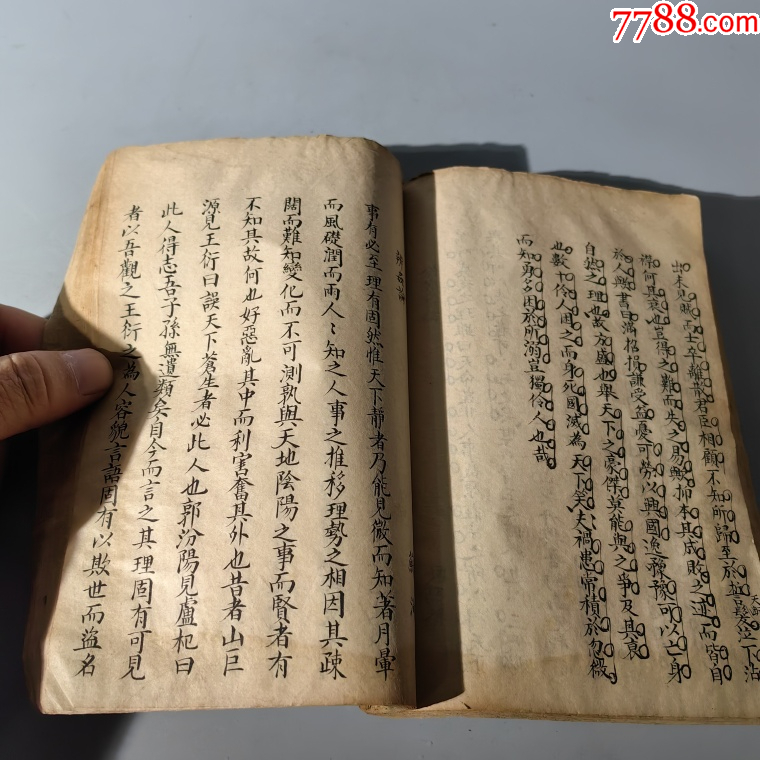 出未見賊而士卒離散君臣相顧不知所歸至於誓天斷髮泣下沾
襟何其衰也豈得之難而失之易歟抑本其成敗之迹而皆自
於人歟書曰滿招損謙受益憂可勞以興國逸豫可以亡身
自然之理也故方盛也舉天下之豪傑莫能與之爭及其衰
也數十伶人困之而身死國滅為天下笑夫禍患常積於忽微
而知勇多困於所溺豈獨伶人也哉
事有必至理有固然惟天下靜者乃能見微而知著月暈
而風礎潤而雨人〻知之人事之推移理勢之相因其疎
闊而難知變化而不可測孰與天地陰陽之事而賢者有
不知其故何也好惡亂其中而利害奮其外也昔者山巨
源見王衍曰誤天下蒼生者必此人也郭汾陽見盧杞曰
此人得志吾子孫無遺類矣自今而言之其理固有可見
者以吾觀之王衍之為人容貌言語固有以欺世而盜名
7788.com